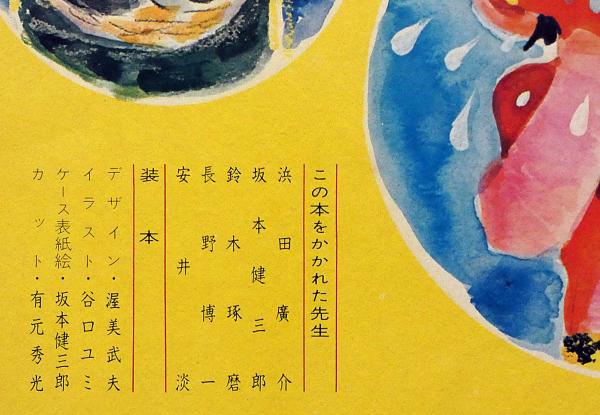 この本をかかれた先生
浜田廣介
坂本健三郎
鈴木琢磨
長野博一
安井淡
装本
デザイン・渥美武夫
イラスト・谷口ユミ
ケース表紙絵・坂本健三郎
カット・有元秀光